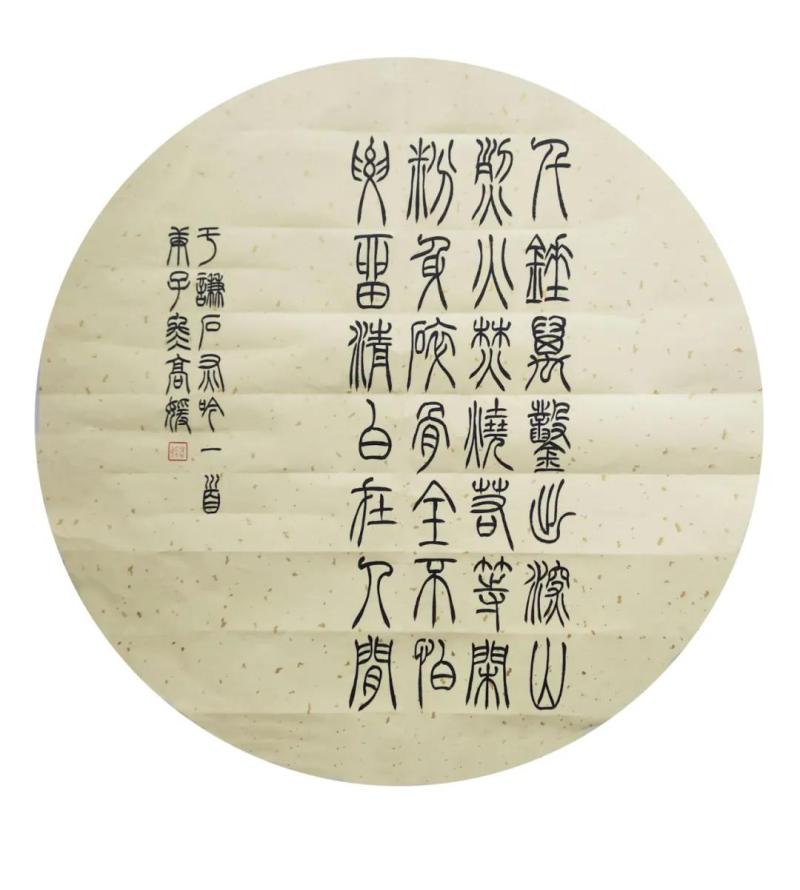 千錘萬鑿出深山
烈火焚燒若等閑
粉身碎骨全不怕
要留清白在人閒
于謙石灰吟一首
庚子冬高媛